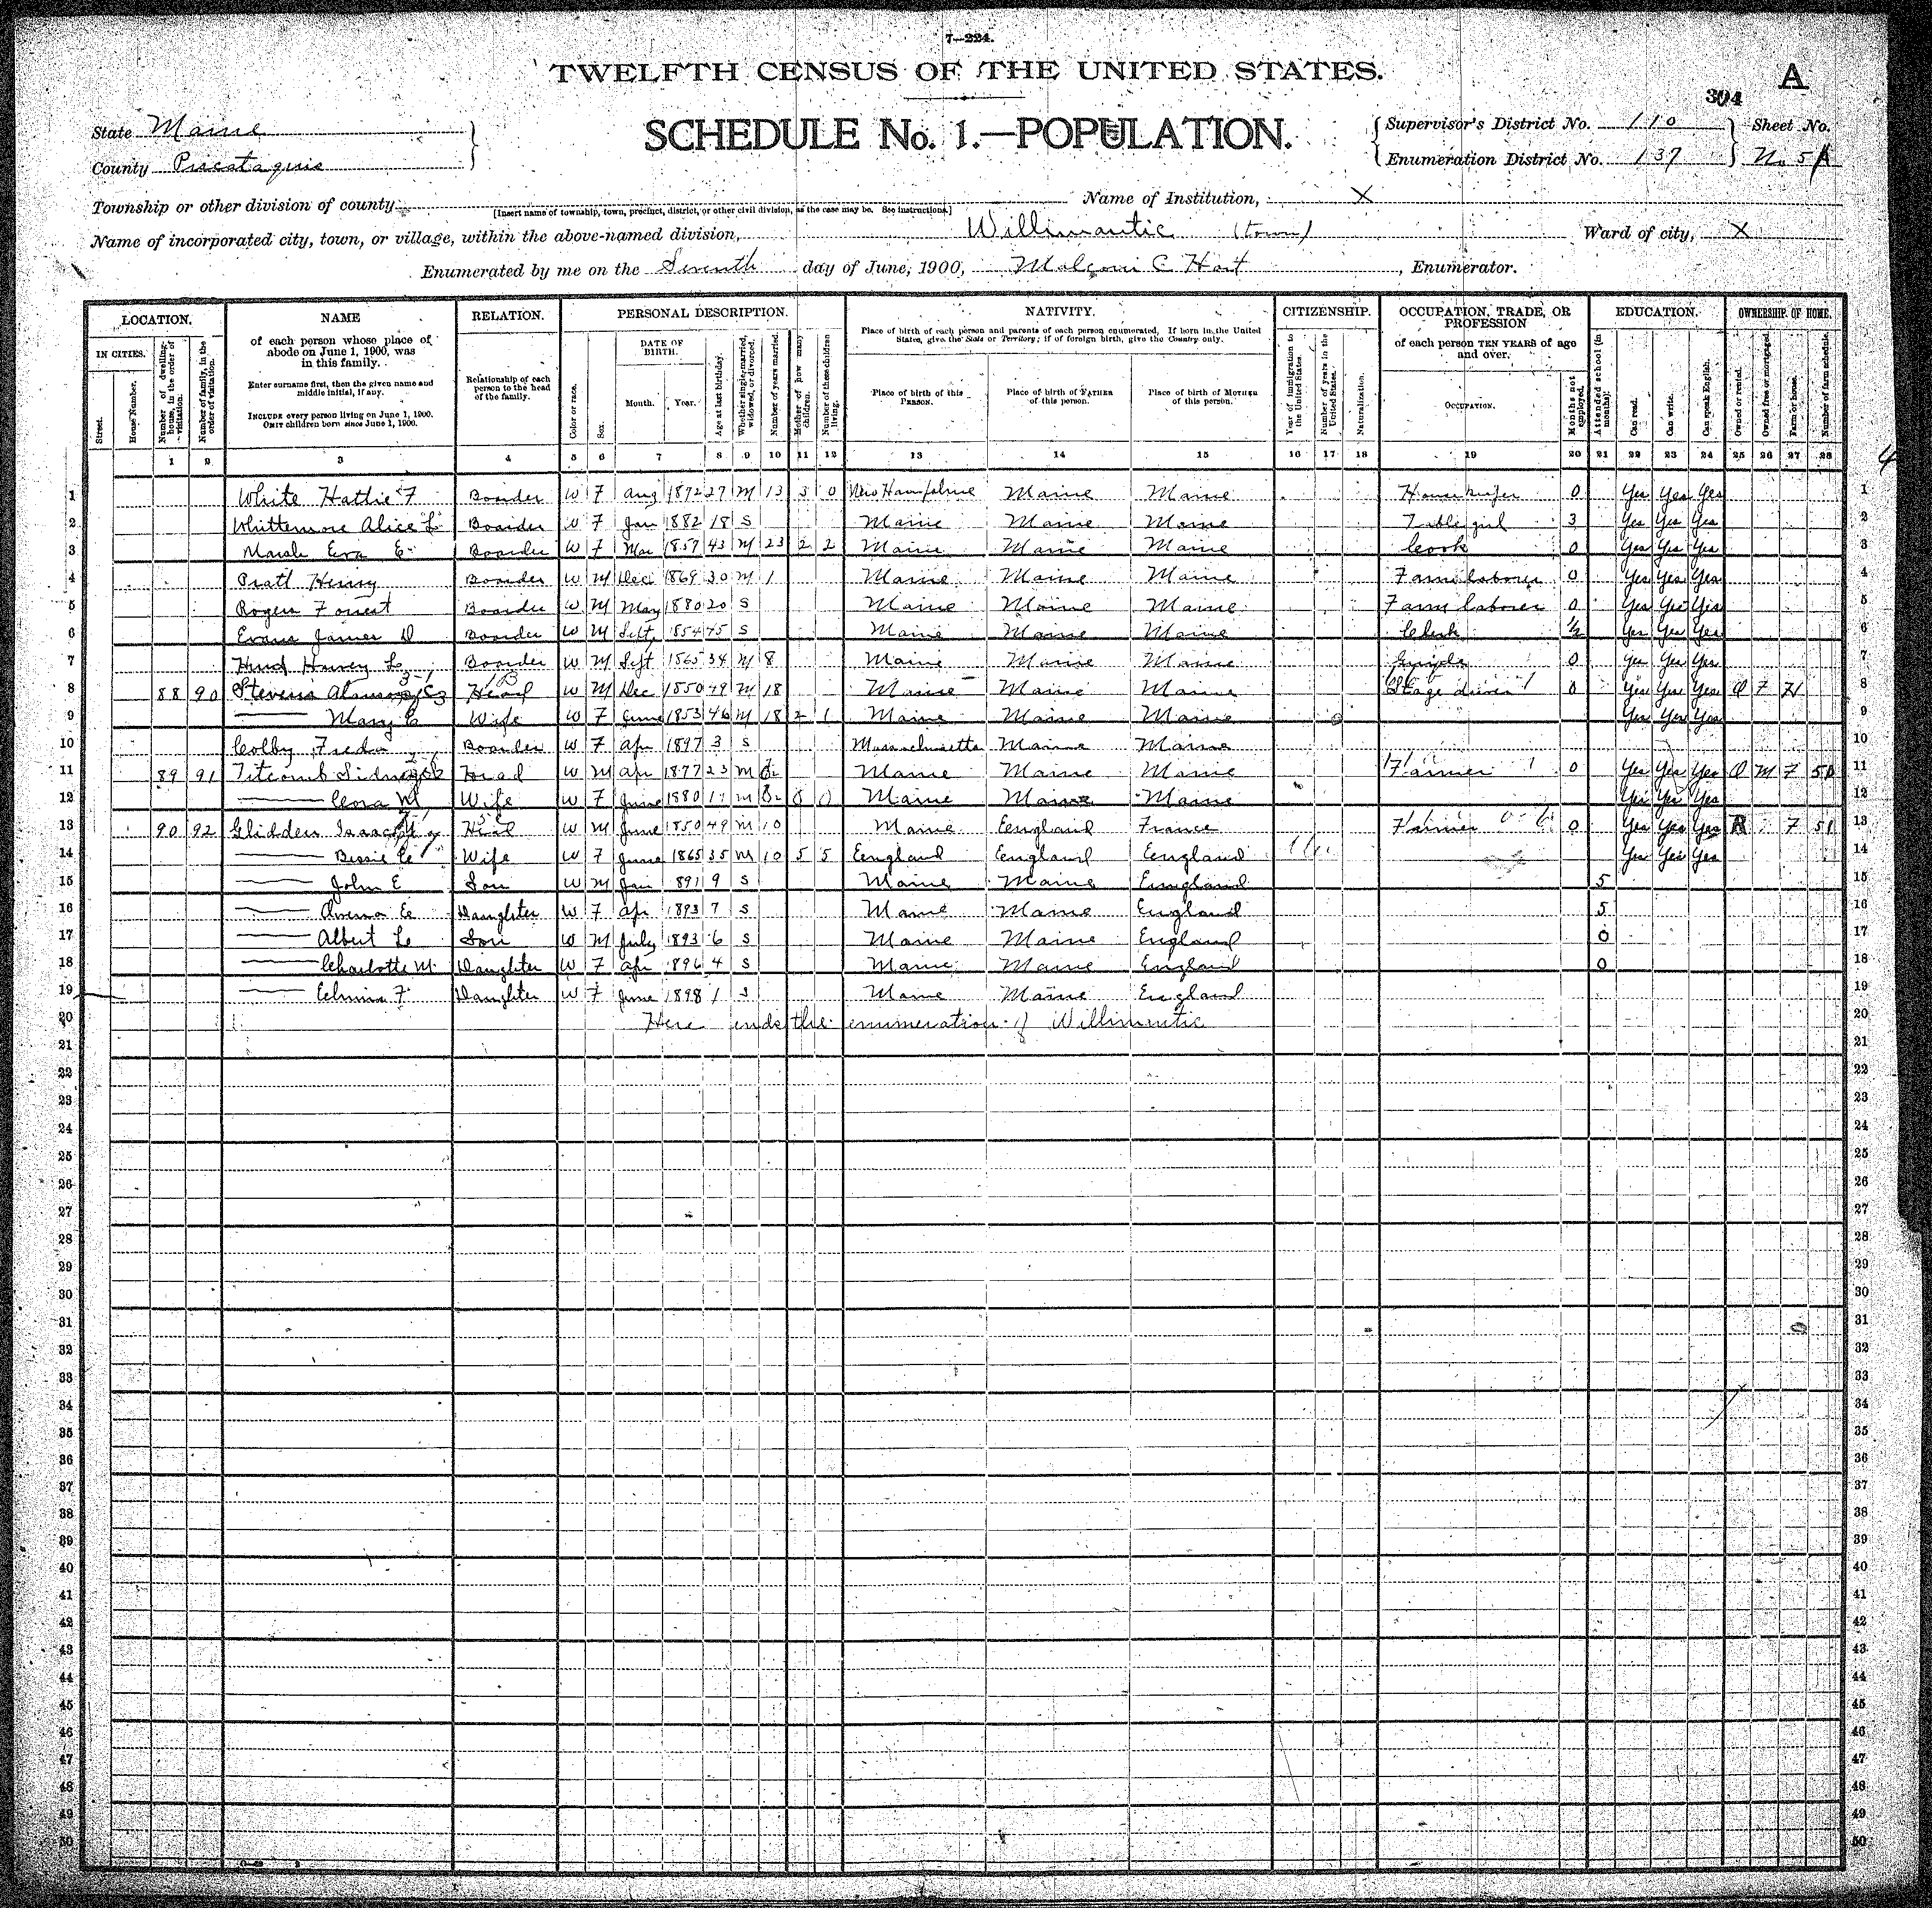 7—224.
TWELFTH CENSUS OF THE UNITED STATES.
A
304
State Maine
SCHEDULE No. 1.—POPULATION.
Supervisor's District No. 110 Sheet No.
County Piscataquis
Enumeration District No. 137 No 5A
Township or other division of county
[Insert name of township, town, precinct, district, or other civil division, as the case may be. See instructions.]
Name of Institution, X
Name of incorporated city, town, or village, within the above-named division, Willimantic (town) Ward of city, X
Enumerated by me on the Seventh day of June, 1900, C Hart, Enumerator.
LOCATION. NAME RELATION. PERSONAL DESCRIPTION. NATIVITY. CITIZENSHIP. OCCUPATION, TRADE, OR PROFESSION EDUCATION. OWNERSHIP OF HOME.
IN CITIES.
Street.
House Number.
Number of dwelling-house, in the order of visitation.
Number of family, in the order of visitation.
of each person whose place of abode on June 1, 1900, was in this family.
Enter surname first, then the given name and middle initial, if any.
INCLUDE every person living on June 1, 1900.
OMIT children born since June 1, 1900.
Relationship of each person to the head of the family.
Color or race.
Sex.
DATE OF BIRTH.
Month. Year.
Age at last birthday.
Whether single, married, widowed, or divorced.
Number of years married.
Mother of how many children.
Number of these children living.
Place of birth of each person and parents of each person enumerated. If born in the United States, give the State or Territory; if of foreign birth, give the Country only.
Place of birth of this PERSON.
Place of birth of FATHER of this person.
Place of birth of MOTHER of this person.
Year of immigration to the United States.
Number of years in the United States.
Naturalization.
of each person TEN YEARS of age and over.
OCCUPATION.
Months not employed.
Attended school (in months).
Can read.
Can write.
Can speak English.
Owned or rented.
Owned free or mortgaged.
Farm or house.
Number of farm schedule.
1 2 3 4 5 6 7 8 9 10 11 12 13 14 15 16 17 18 19 20 21 22 23 24 25 26 27 28
4
1 White Hattie F Boarder W F Aug 1872 27 M 13 3 0 New Hampshire Maine Maine Housekeeper 0 Yes Yes Yes 1
2 Whittemore Alice L Boarder W F Jan 1882 18 S Maine Maine Maine Table girl 3 Yes Yes Yes 2
3 Marsh Eva E Boarder W F Mar 1857 43 M 23 2 2 Maine Maine Maine Cook 0 Yes Yes Yes 3
4 Pratt Henry Boarder W M Dec 1869 30 M 1 Maine Maine Maine Farm laborer 0 Yes Yes Yes 4
5 Rogers Forrest Boarder W M May 1880 20 S Maine Maine Maine Farm laborer 0 Yes Yes Yes 5
6 Evans James D Boarder W M Sept 1854 45 S Maine Maine Maine Clerk Yes Yes Yes 6
7 Harvey L Boarder W M Sept 1865 34 M 8 Maine Maine Maine 0 Yes Yes Yes 7
8 88 90 Stevens Head W M Dec 1850 49 M 18 Maine Maine Maine Stage driver 0 Yes Yes Yes O F H 8
9 Mary E Wife W F June 1853 46 M 18 2 1 Maine Maine Maine Yes Yes Yes 9
10 Colby Freda Boarder W F Apr 1897 3 S Massachusetts Maine Maine 10
11 89 91 Titcomb Sidney Head W M Apr 1877 23 M Maine Maine Maine Farmer 0 Yes Yes Yes O M F 50 11
12 Cora M Wife W F June 1880 19 M 0 0 Maine Maine Maine Yes Yes Yes 12
13 90 92 Glidden Isaac Head W M June 1850 49 M 10 Maine England France Farmer 0 Yes Yes Yes R F 51 13
14 Bessie E Wife W F June 1865 35 M 10 5 5 England England England Yes Yes Yes 14
15 John E Son W M Jan 1891 9 S Maine Maine England 5 15
16 E Daughter W F Apr 1893 7 S Maine Maine England 5 16
17 Albert L Son W M July 1893 6 S Maine Maine England 0 17
18 Charlotte M. Daughter W F Apr 1896 4 S Maine Maine England 0 18
19 F Daughter W F June 1898 1 S Maine Maine England 19
20 Here ends the enumeration of Willimantic 20
21 21
22 22
23 23
24 24
25 25
26 26
27 27
28 28
29 29
30 30
31 31
32 32
33 33
34 34
35 35
36 36
37 37
38 38
39 39
40 40
41 41
42 42
43 43
44 44
45 45
46 46
47 47
48 48
49 49
50 50